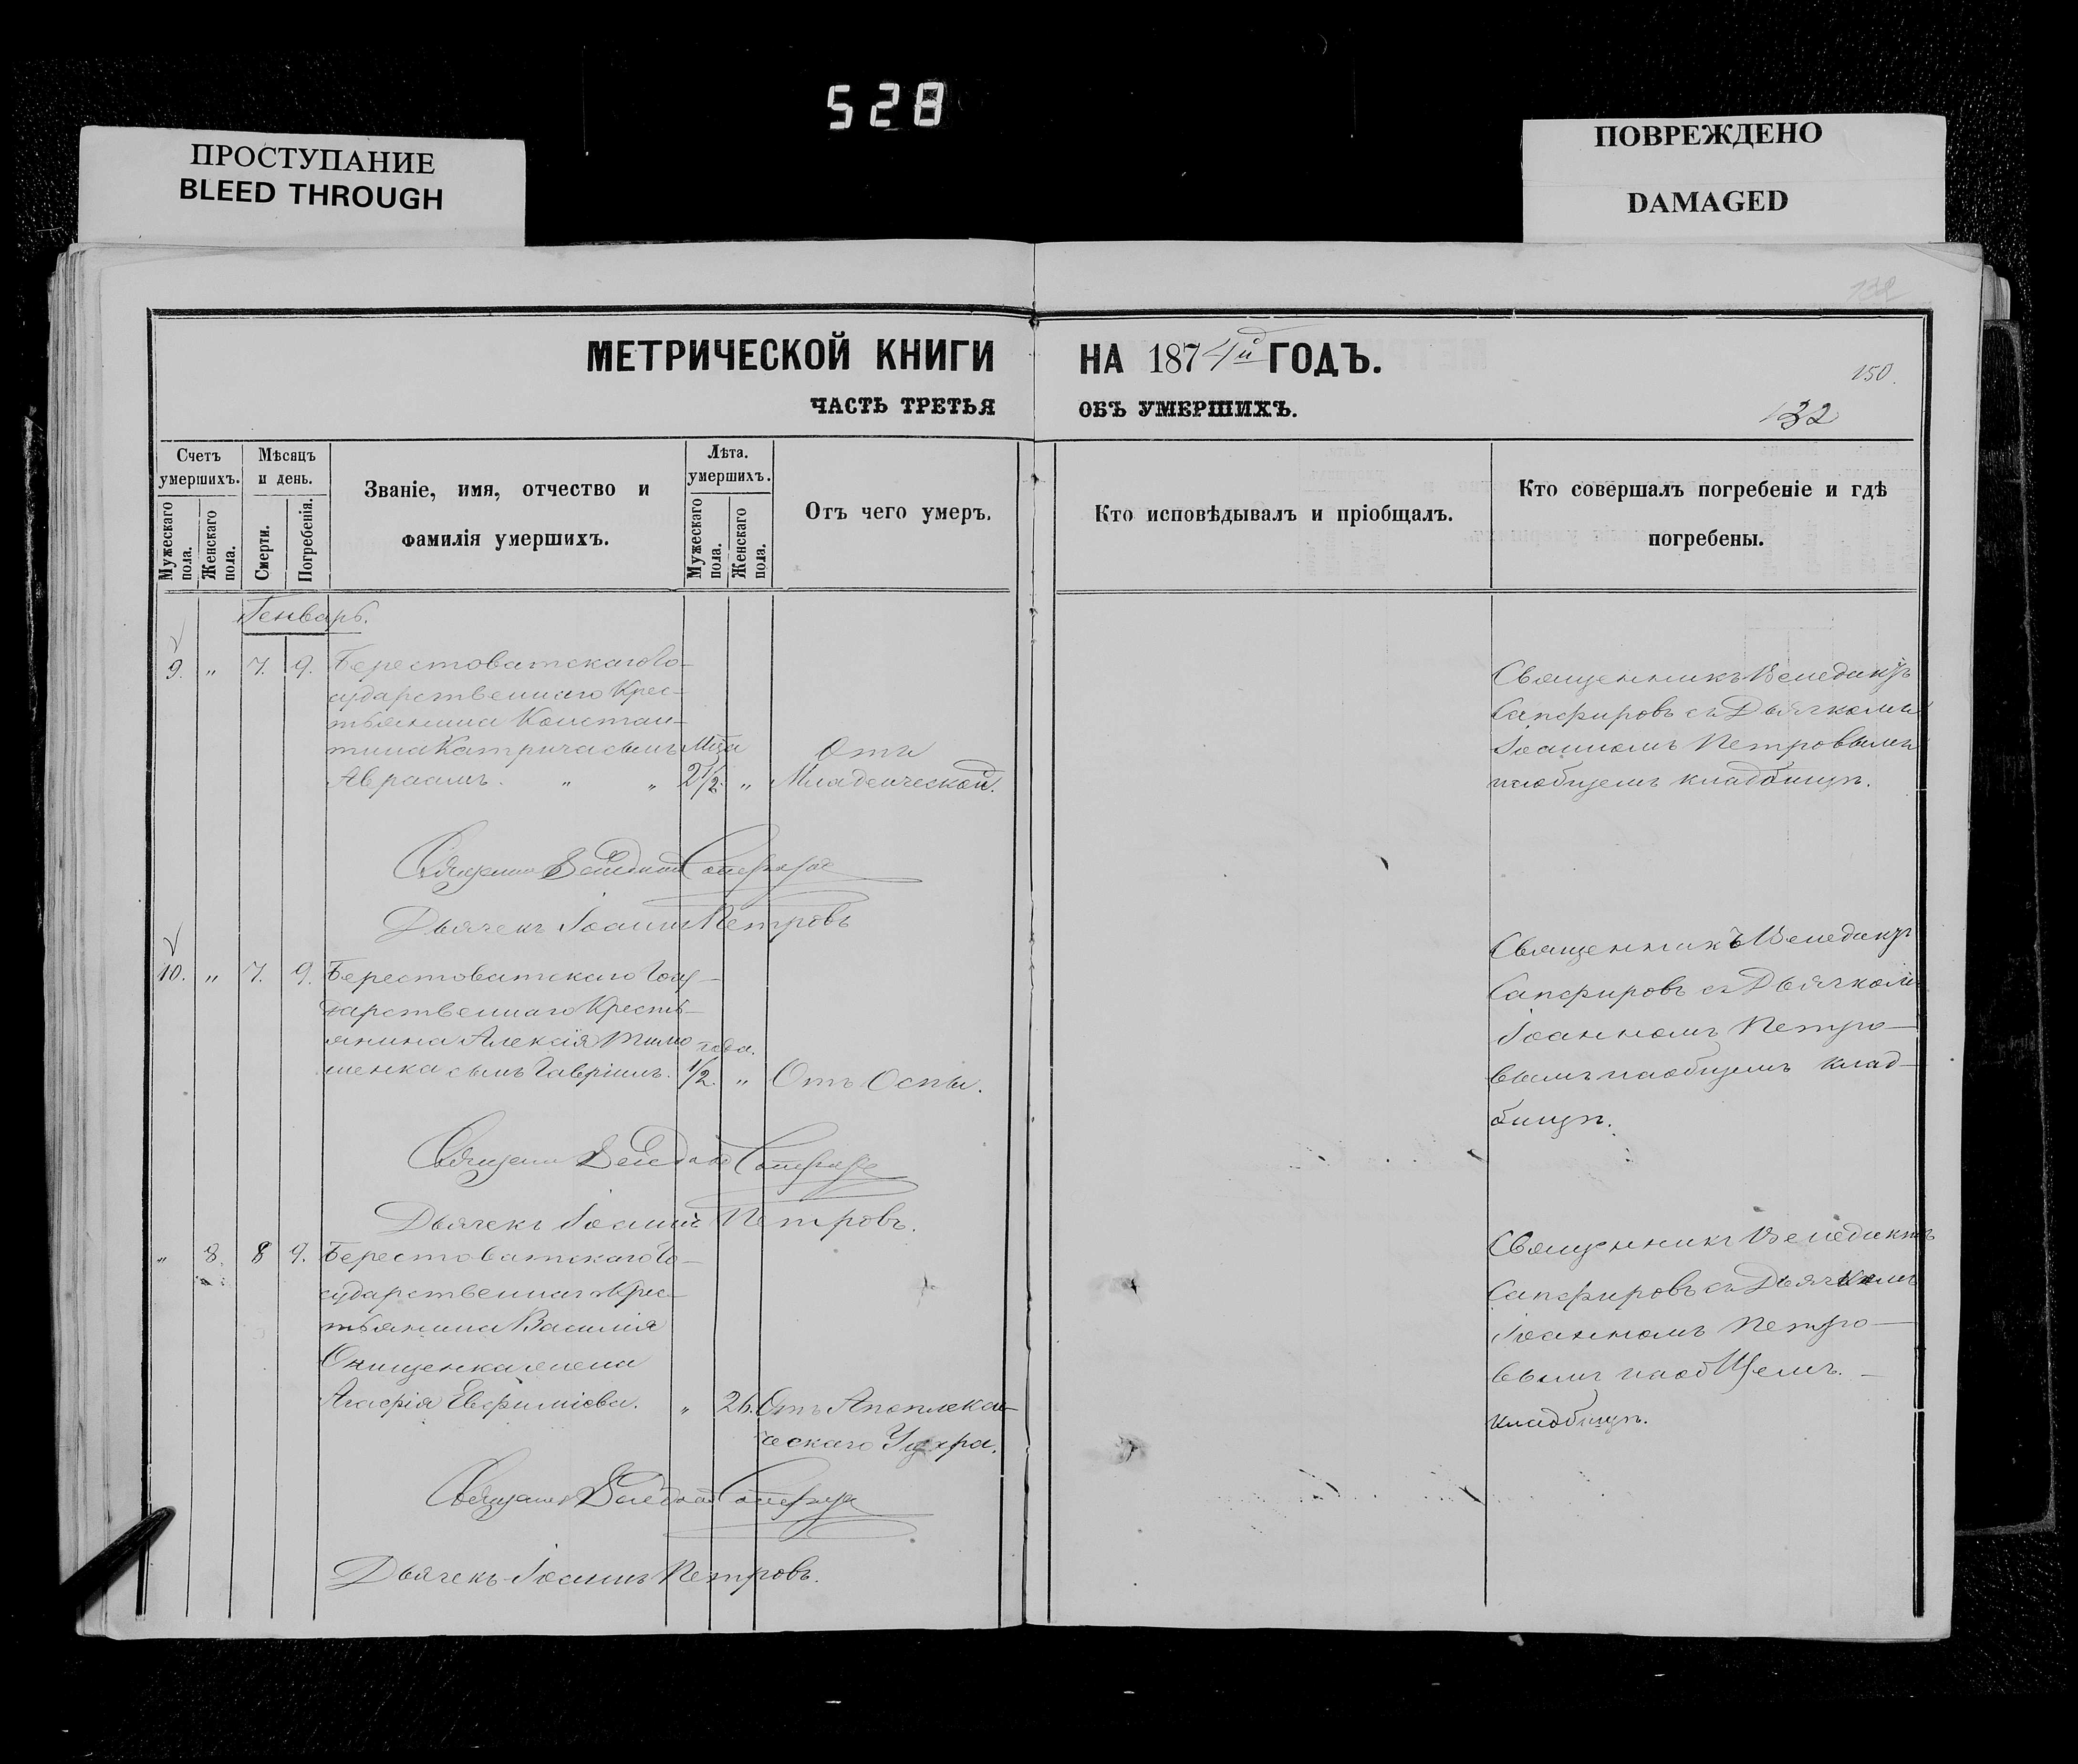 528
ПРОСТУПАНИЕ
BLEED THROUGH
ПОВРЕЖДЕНО
DAMAGED
МЕТРИЧЕСКОЙ КНИГИ НА 1874й ГОДЪ.
150.
ЧАСТЬ ТРЕТЬЯ ОБЪ УМЕРШИХЪ.
132
Счетъ умершихъ.
Мужескаго пола.
Женскаго пола.
Мѣсяцъ и день.
Смерти.
Погребенія.
Званіе, имя, отчество и
фамилія умершихъ.
Лѣта. умершихъ.
Мужескаго пола.
Женскаго пола.
Отъ чего умеръ.
Кто исповѣдывалъ и пріобщалъ.
Кто совершалъ погребеніе и гдѣ
погребены.
Генварь.
9. " 7. 9. Берестоватскаго Го-
сударственнаго Крес-
тьянина Констан-
тина Катрича сынъ Мца Отъ
Авраамъ. " " 2 1/2. " Младенческой.
Священникъ Венедиктъ
Сапфировъ съ Дьячкомъ
Іоанномъ Петровымъ
на общемъ кладбищѣ.
Священник Венедикт Сапфиров
Дьячекъ Іоаннъ Петровъ
10. " 7. 9. Берестоватскаго Госу-
дарственнаго Кресть-
янина Алексѣя Тимо года.
шенка сынъ Гавріилъ. 1/2. " Отъ Оспы.
Священникъ Венедиктъ
Сапфировъ съ Дьячкомъ
Іоанномъ Петро-
вымъ на общемъ клад-
бищѣ.
Священник Венедикт Сапфиров
Дьячекъ Іоаннъ Петровъ.
" 8. 8 9. Берестоватскаго Го-
сударственнаго Крес-
тьянина Василія
Онищенка жена
Агафія Евфиміова. " 26. Отъ Апоплекси-
ческаго Удара.
Священникъ Венедиктъ
Сапфировъ съ Дьячкомъ
Іоанномъ Петро-
вымъ на общемъ. -
кладбищѣ.
Священник Венедикт Сапфиров
Дьячекъ Іоаннъ Петровъ.